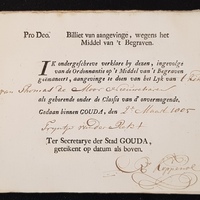 Pro Deo. Billiet van aangevinge, wegens het
Middel van 't Begraven.
IK ondergeschreve verklare by dezen, ingevolge
van de Ordonnantie op 't Middel van 't Begraven
geëmaneert, aangevinge te doen van het Lyk van
van Thomas de Moor
als gehorende onder de Classe van d'onvermogende.
Gedaan binnen GOUDA, den 2e Maart
Ter Secretarye der Stad GOUDA,
geteikent op datum als boven,